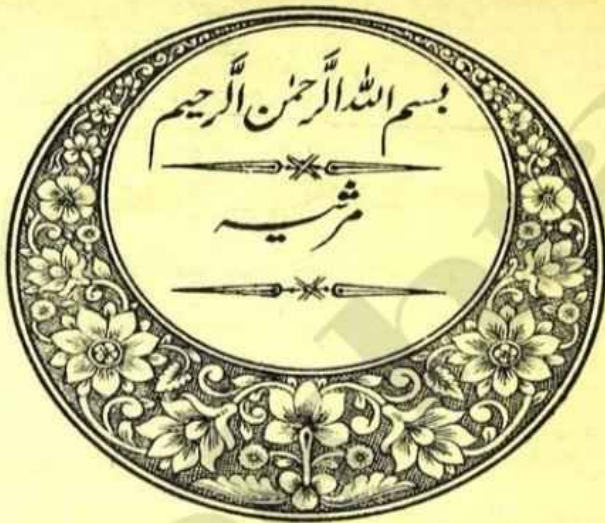 بسم اللہ الرحمٰن الرحیم
مرثیہ